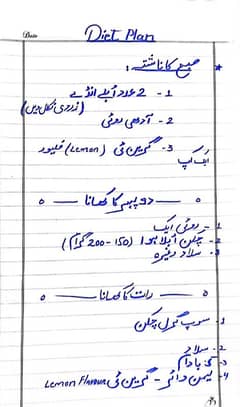 Date
Diet Plan
صبح کا ناشتہ:
1 - 2 عدد اُبلے انڈے
(زردی نکال دیں)
2 - آدھی روٹی
3 - گرین ٹی (Lemon) فلیور
ایک کپ
دوپہر کا کھانا
1 - روٹی ایک
2 - چکن اُبلا ہوا (150-200 گرام)
3 - سلاد وغیرہ
رات کا کھانا
1 - سوپ گرل چکن
2 - سلاد
3 - بادام
4 - لیمن واٹر - گرین ٹی Lemon Flavour